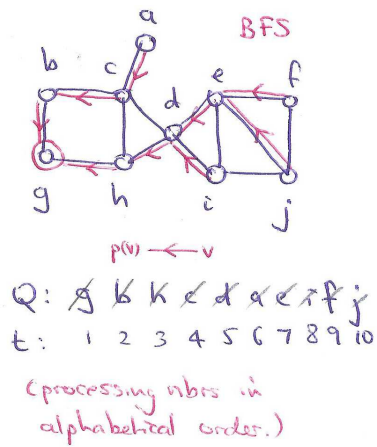 BFS
a
b c d e f
g h i j
p(v) ← v
Q: g b h c d a e i f j
t: 1 2 3 4 5 6 7 8 9 10
(processing nbrs in
alphabetical order.)